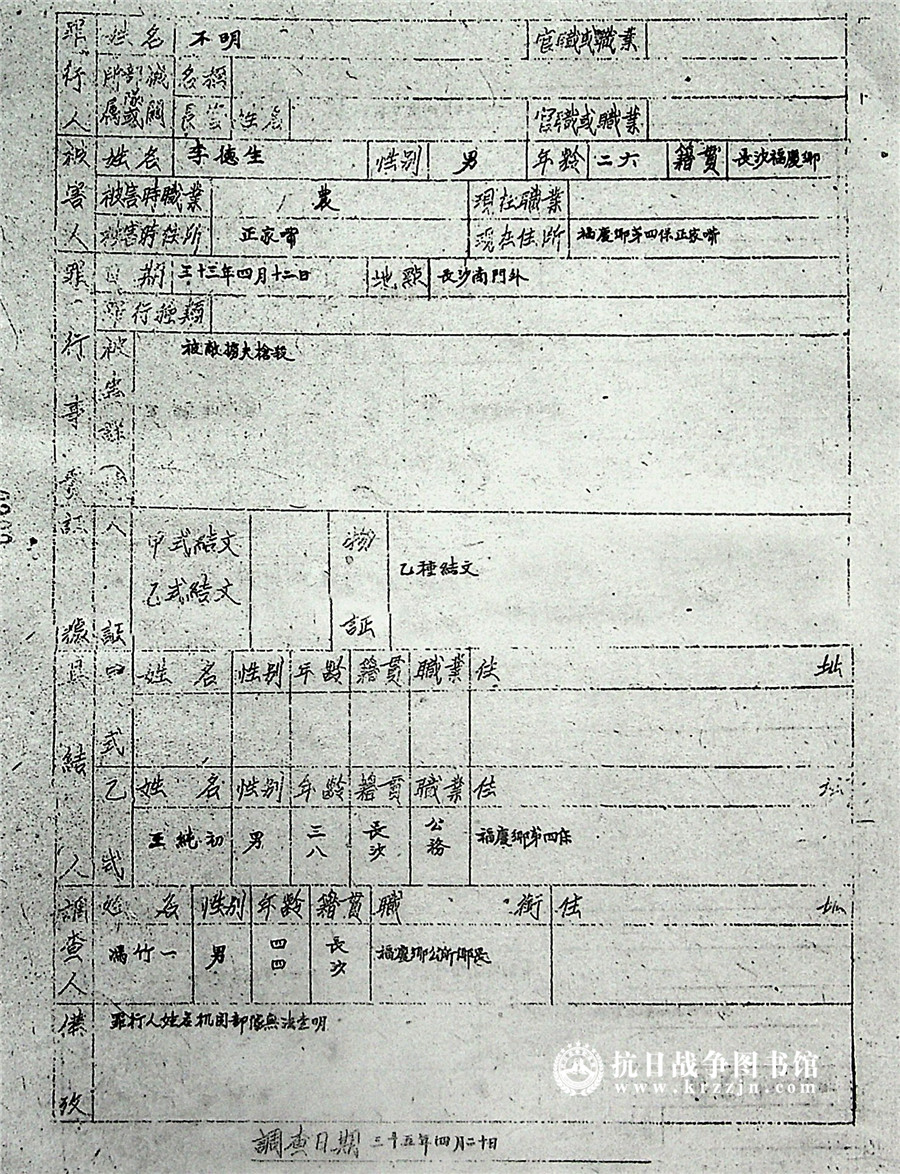 罪行人 姓名 不明 官職或職業
所屬部隊或機關 名稱
長官姓名 官職或職業
被害人 姓名 李德生 性别 男 年龄 二六 籍贯 長沙福慶鄉
被害時職業 農 現在職業
被害時住所 正家嘴 現在住所 福慶鄉第四保正家嘴
罪行事實 日期 三十三年四月十二日 地點 長沙南門外
罪行種類
被害詳 被敵擄夫槍殺
証據 人証 甲式結文 物証 乙種結文
乙式結文
具結人 甲式 姓名 性别 年龄 籍贯 職業 住址
乙式 姓名 性别 年龄 籍贯 職業 住址
王純初 男 三八 長沙 公務 福慶鄉第四保
調查人 姓名 性别 年龄 籍贯 職銜 住址
馮竹一 男 四四 長沙 福慶鄉公所鄉長
備攷 罪行人姓名机関部隊無法查明
抗日战争图书馆
www.krzzjn.com
調查日期 三十五年四月二十日